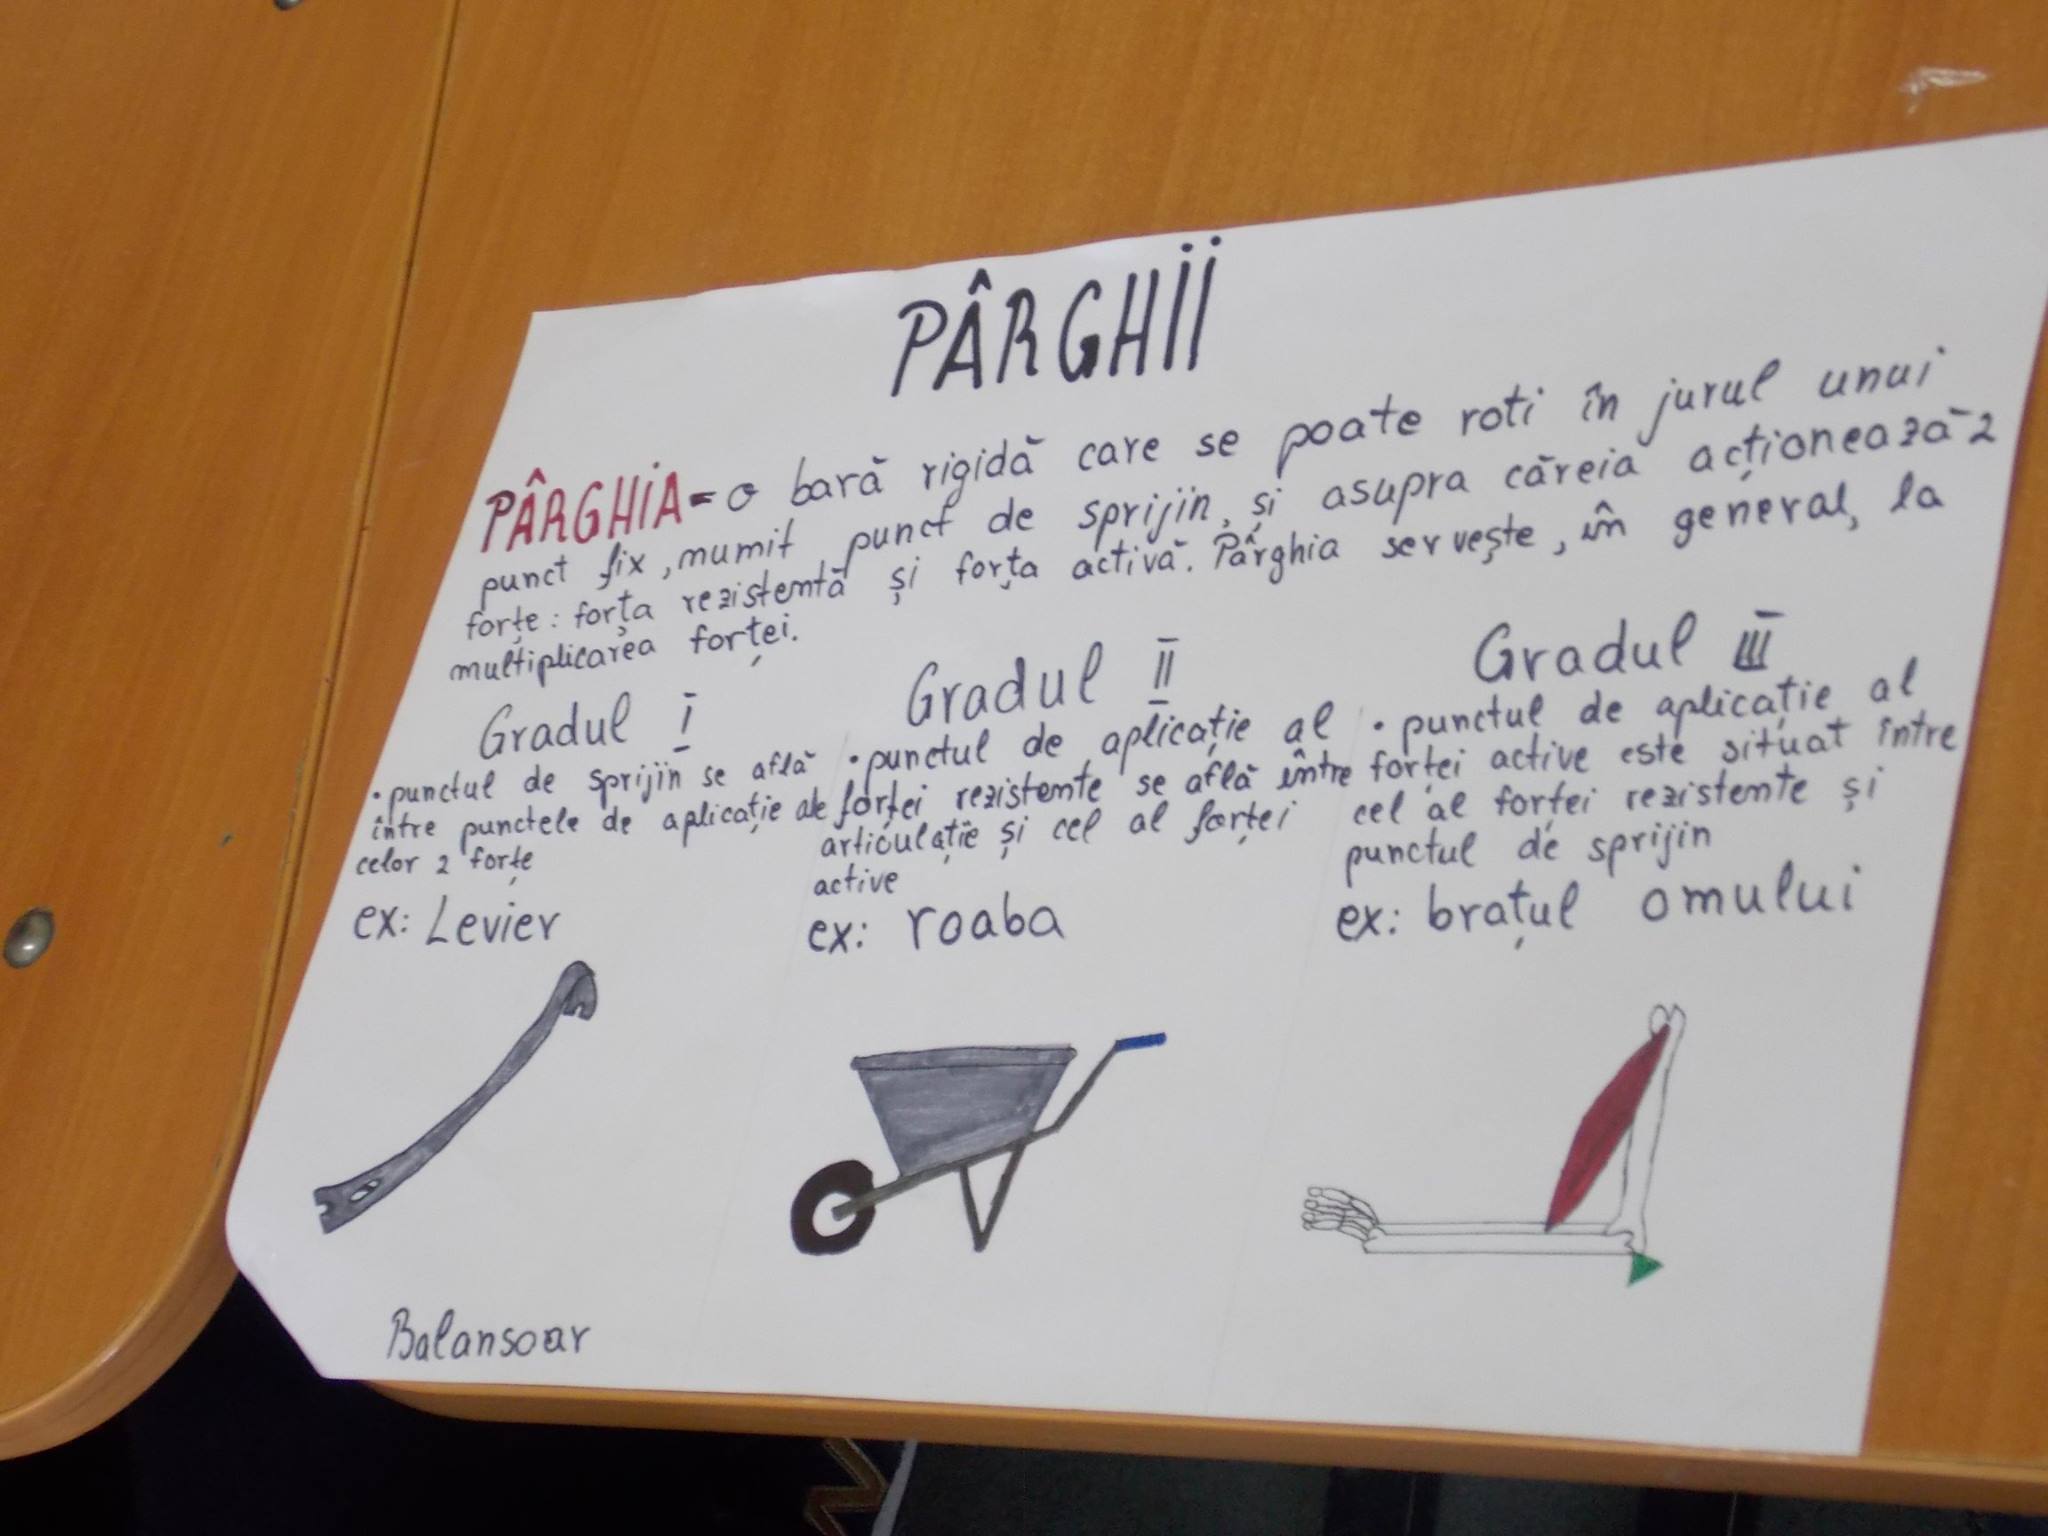 PÂRGHII
PÂRGHIA = o bară rigidă care se poate roti în jurul unui
punct fix, numit punct de sprijin, și asupra căreia acționează 2
forțe: forța rezistentă și forța activă. Pârghia servește, în general, la
multiplicarea forței.
Gradul I
• punctul de sprijin se află
între punctele de aplicație ale
celor 2 forțe
ex: Levier
Balansoar
Gradul II
• punctul de aplicație al
forței rezistente se află între
articulație și cel al forței
active
ex: roaba
Gradul III
• punctul de aplicație al
forței active este situat între
cel al forței rezistente și
punctul de sprijin
ex: brațul omului